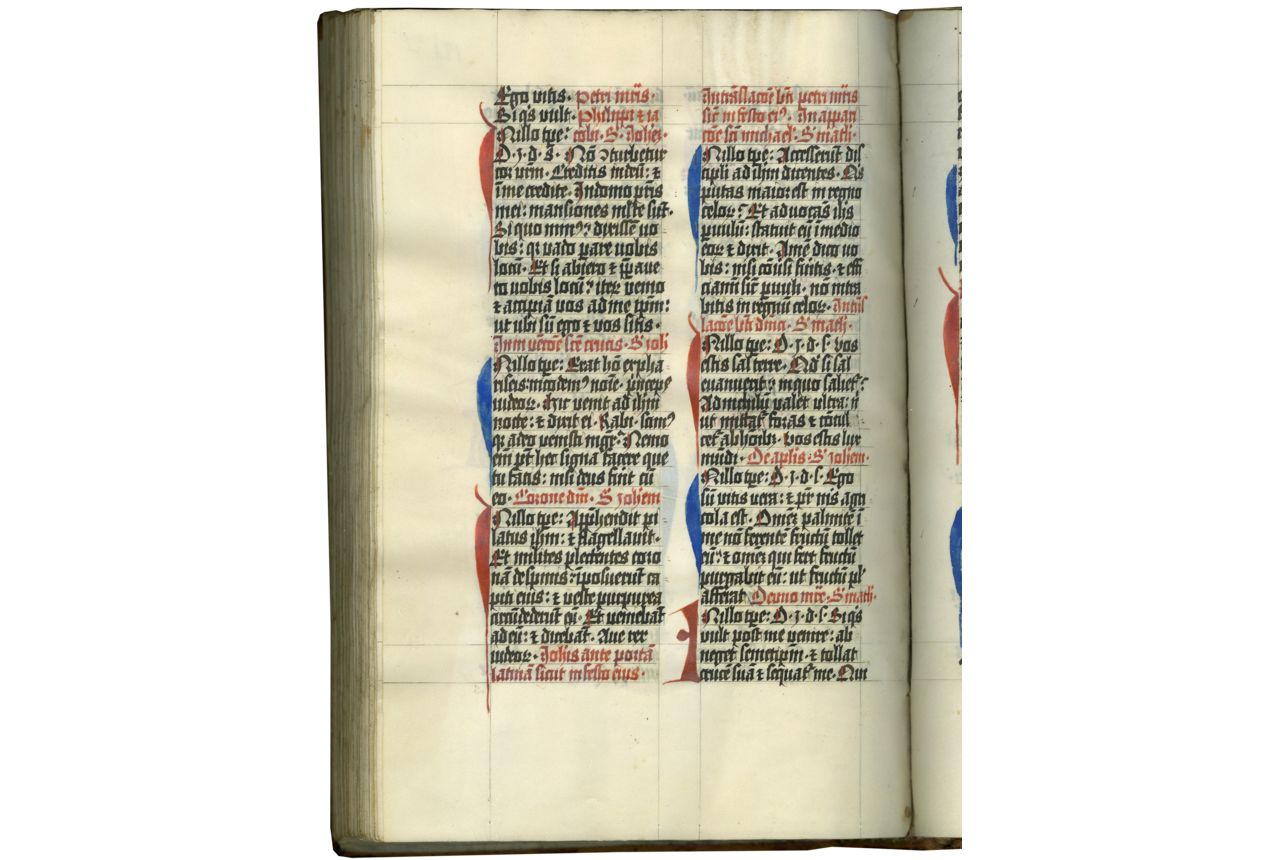 Ego vitis. Petri mris.
Si qis vult. Philippi ⁊ ia
Nillo tpe: cobi. S. Johem.
D. J. d. s. Nō ꝯturbetur
cor vrm. Creditis in deū: ⁊
ī me credite. In domo pris
mei: mansiones mlte sūt.
Si quo minꝰ: dixissē vo
bis: qr vado pare vobis
locū. Et si abiero ⁊ ppaue
ro vobis locū: iter venio
⁊ accipiā vos ad me ipm:
ut ubi sū ego ⁊ vos sitis.
In inuētōe sce crucis. S. Joh
Nillo tpe: Erat hō ex pha
riseis: nicodemꝰ noīe. princeps
iudeor. Hic venit ad ihm
nocte: ⁊ dixit ei. Rabi. scimꝰ
qr a deo venisti mgr. Nemo
em pt hec signa facere que
tu facis: nisi deus fuit cū
eo. Corone dni. S Johem
Nillo tpe: Apphendit pi
latus ihm: ⁊ flagellauit.
Et milites plectentes coro
nā de spinis: īposuerūt ca
piti eius: ⁊ veste purpurea
circūdederūt eū. Et veniebāt
ad eū: ⁊ dicebāt. Aue rex
iudeor. Johis ante portā
latinā sicut in festo eius.
In trāslacōe bti petri mris
sic in festo eiꝰ. In appari
cōe sci michael. S. math.
Nillo tpe: Accesserūt dis
cipli ad ihm dicentes. Qis
putas maior est in regno
celor? Et aduocās ihs
puulū: statuit eū ī medio
eor ⁊ dixit. Amē dico vo
bis: nisi cōuersi fuitis. ⁊ effi
ciamī sic puuli. nō intra
bitis in regnū celor. In trās
lacōe bti dnici. S. math.
Nillo tpe: D. J. d. s. Vos
estis sal terre. Qd si sal
euanuerit: in quo saliet?
Ad nichilū valet ultra: n
ut mittat foras ⁊ cōcul
cet ab hoībꝰ. Vos estis lux
mūdi. De aplis. S. Johem.
Nillo tpe: D. J. d. s. Ego
sū vitis vera: ⁊ pr mis agri
cola est. Omem palmitē ī
me nō ferentē fructū tollet
eū: ⁊ omem qui fert fructū
purgabit eū: ut fructū pl
afferat. De uno mre. S. math.
Nillo tpe: D. J. d. s. Si qis
vult post me venire: ab
neget semetipm. ⁊ tollat
crucē suā ⁊ sequat me. Qui